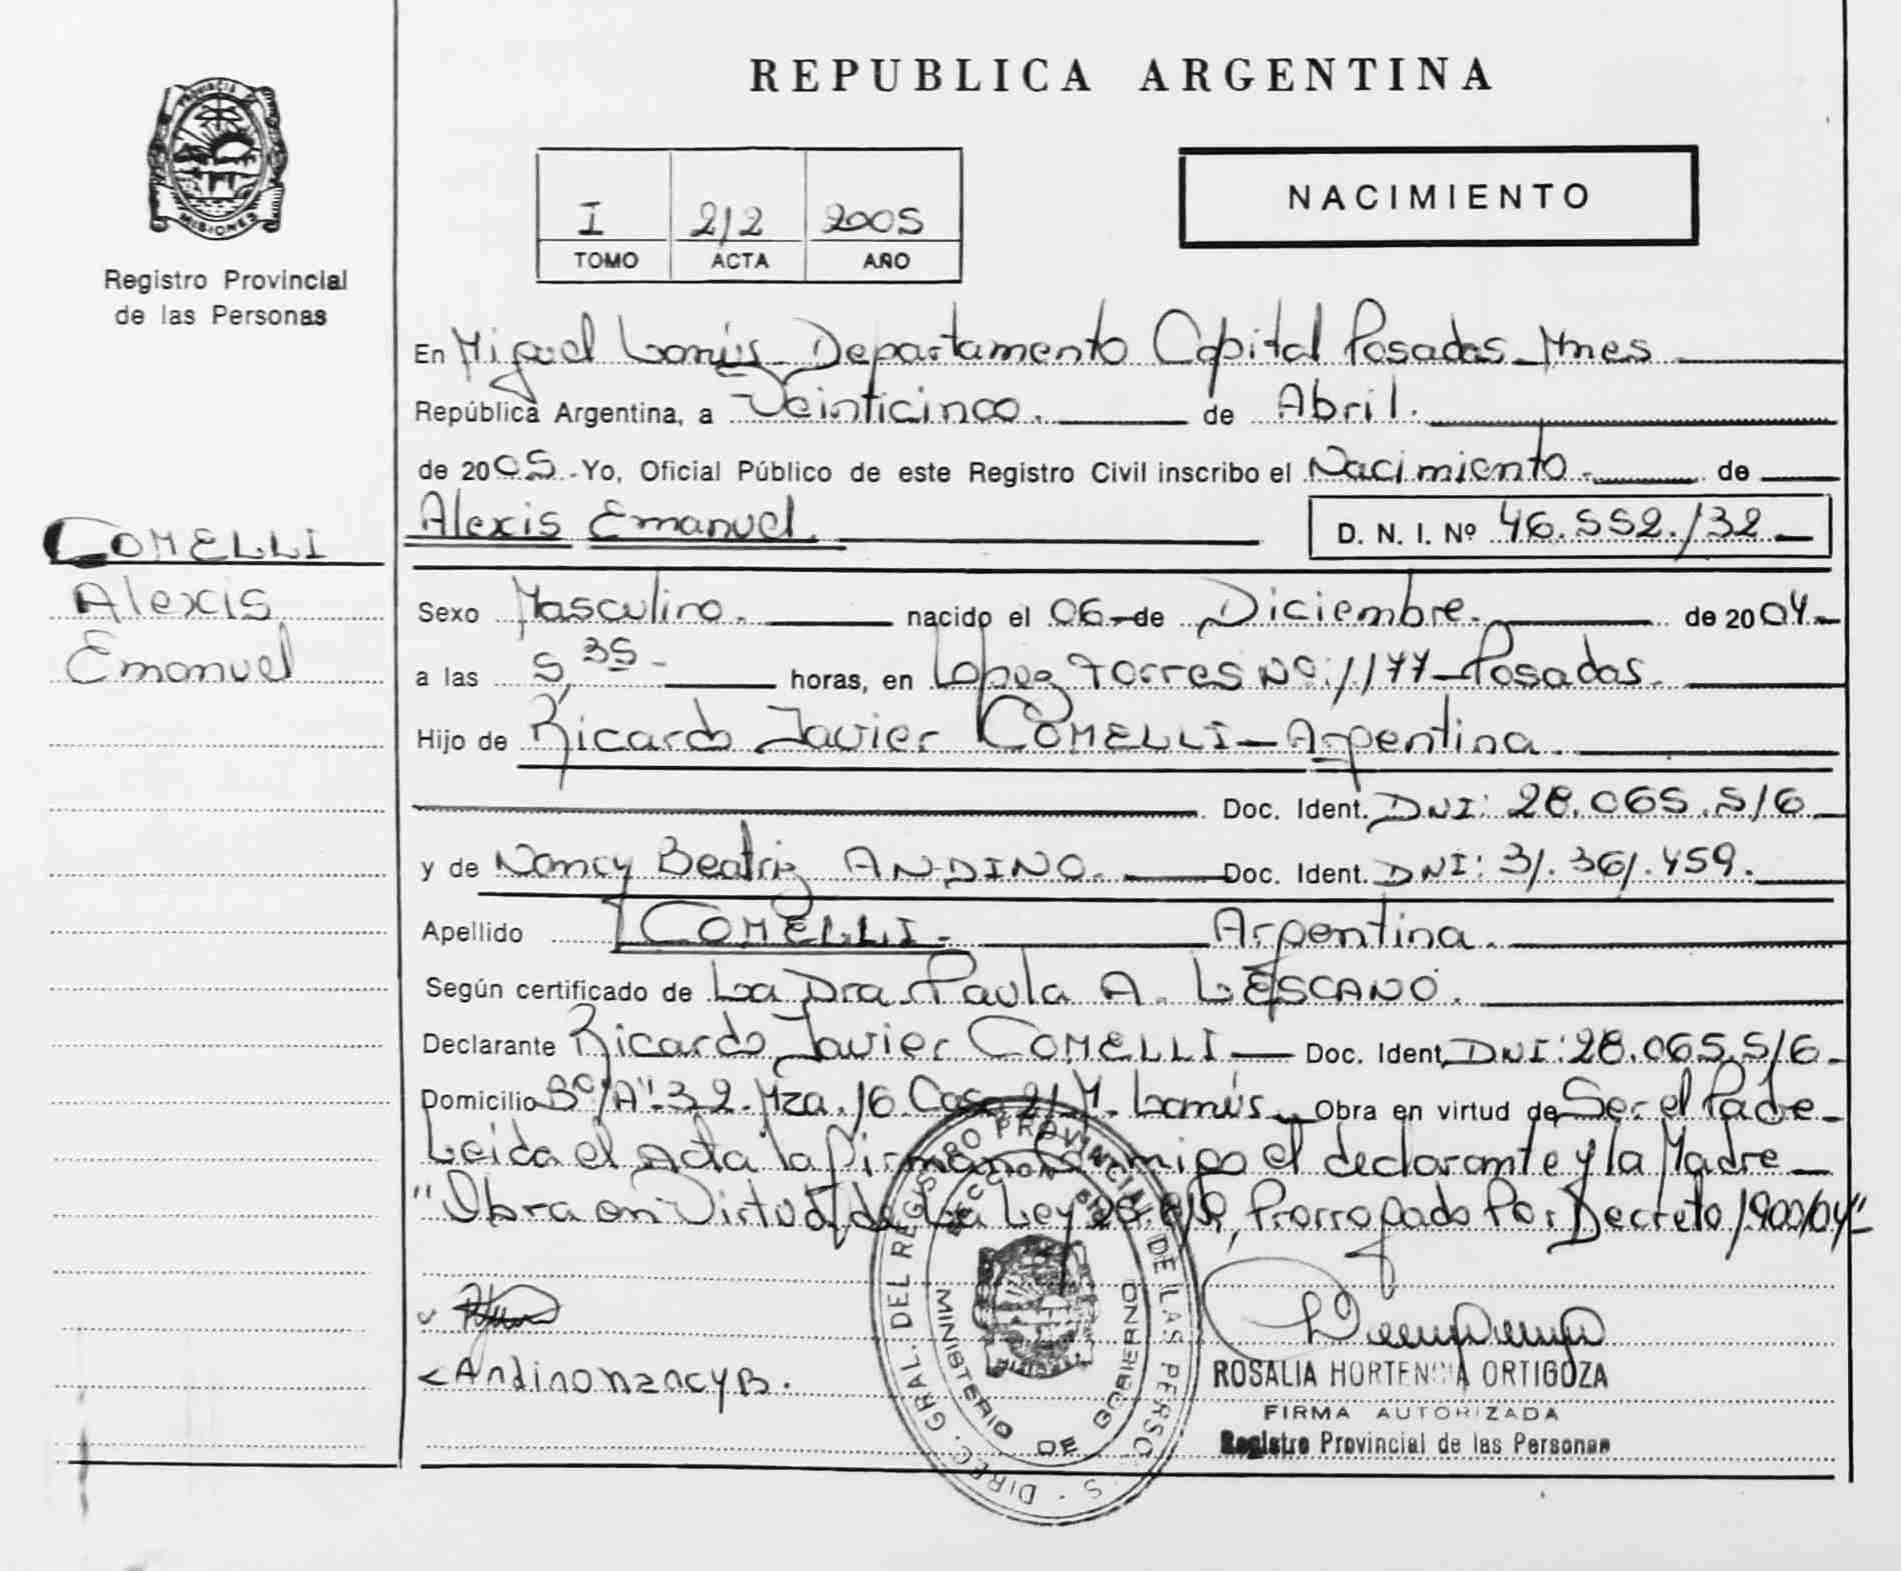 REPUBLICA ARGENTINA
PROVINCIA DE
MISIONES
Registro Provincial
de las Personas
I 212 2005
TOMO ACTA AÑO
NACIMIENTO
En Miguel Lanús Departamento Capital Posadas Mnes
República Argentina, a Veinticinco. de Abril.
de 2005.- Yo, Oficial Público de este Registro Civil inscribo el Nacimiento. de
COMELLI
Alexis
Emanuel
Alexis Emanuel. D. N. I. Nº 46.552.132
Sexo Masculino. nacido el 06 de Diciembre. de 2004.
a las 5,35 horas, en López Torres Nº: 1177 Posadas.
Hijo de Ricardo Javier COMELLI - Argentina.
Doc. Ident. DNI: 28.065.516
y de Nancy Beatriz ANDINO. Doc. Ident. DNI: 31.361.459.
Apellido COMELLI. Argentina.
Según certificado de La Dra. Paula A. LESCANO.
Declarante Ricardo Javier COMELLI Doc. Ident. DNI: 28.065.516
Domicilio Bº "A" 32. Mza. 16 Casa 21 M. Lanús Obra en virtud de Ser el Padre
Leida el Acta la firman conmigo el declarante y la Madre
"Obra en Virtud de La Ley Prorrogado Por Decreto 1900/04"
Andino nancy B.
ROSALIA HORTENCIA ORTIGOZA
FIRMA AUTORIZADA
Registro Provincial de las Personas
DIREC. GRAL. DEL REGISTRO PROVINCIAL DE LAS PERSONAS
MINISTERIO DE GOBIERNO